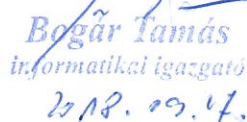 Bogár Tamás
informatikai igazgató
2018. 09. 17.